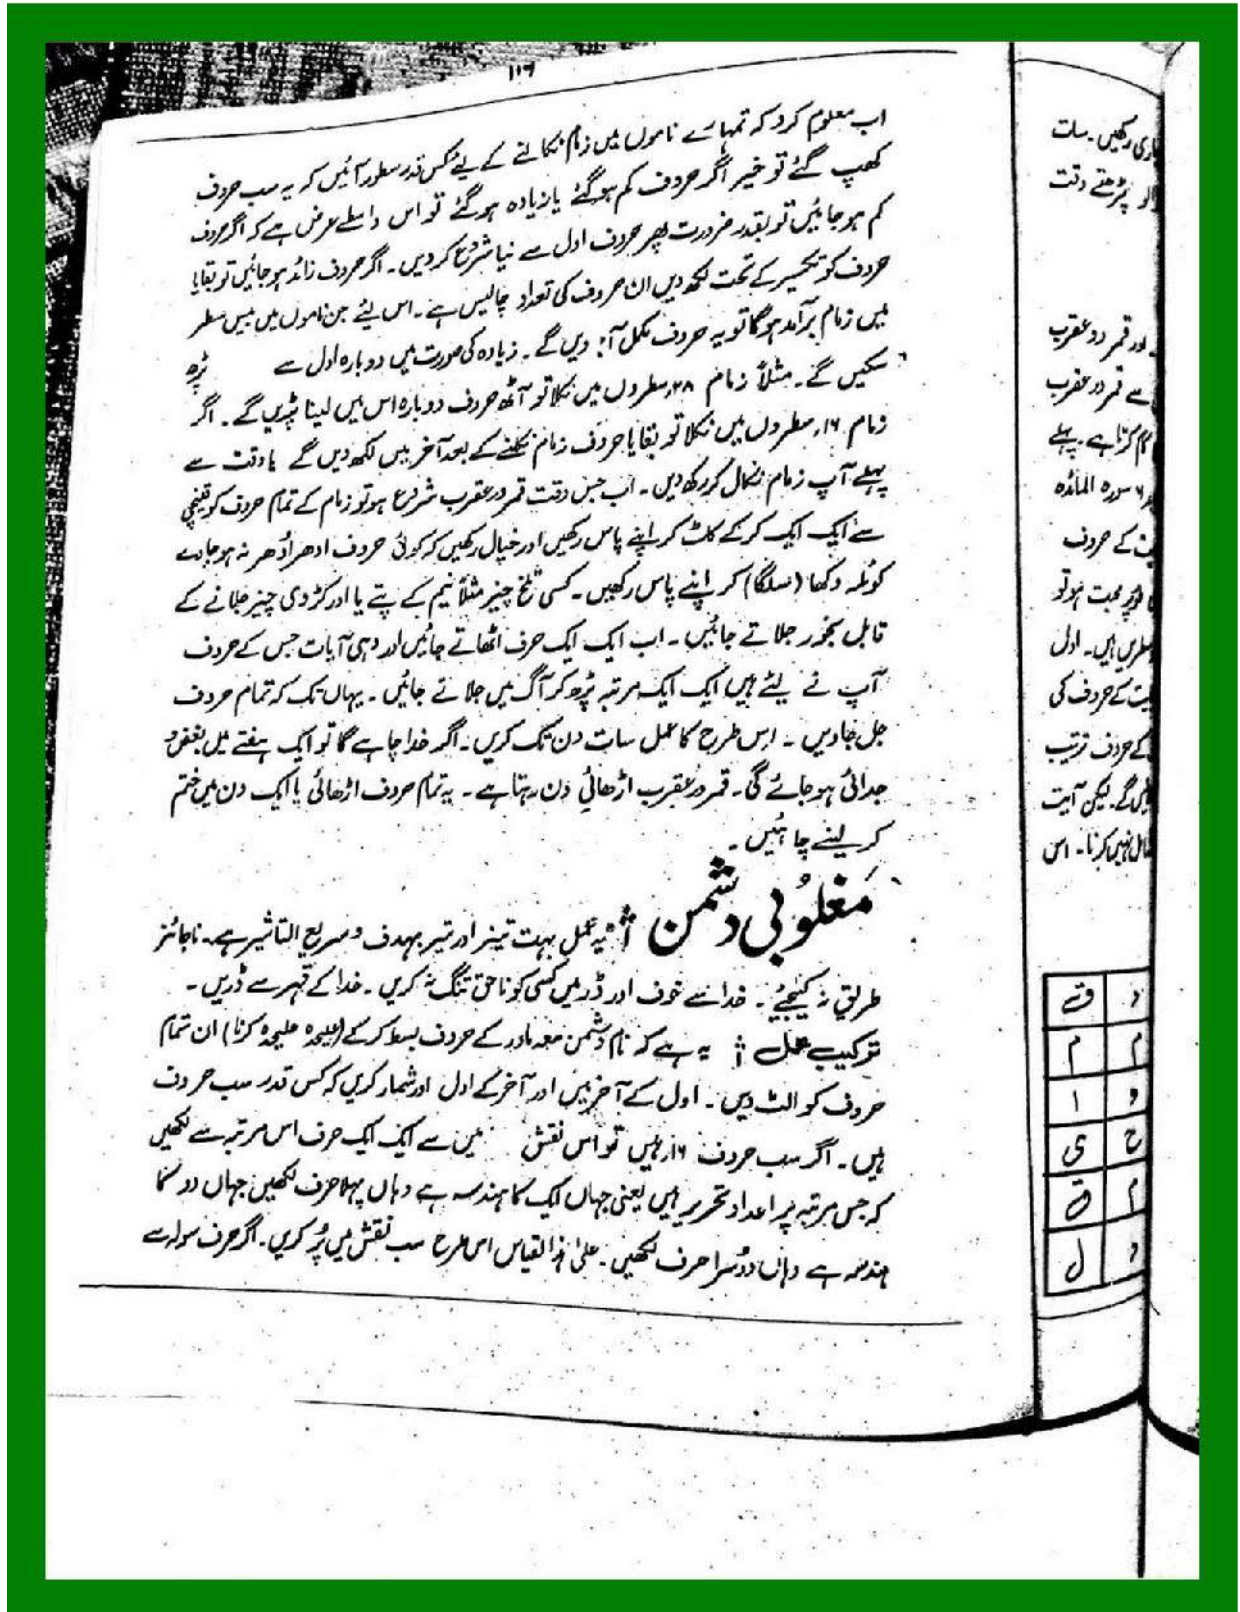 ۱۱۶
اب معلوم کرو کہ تمہارے ناموں میں زمام نکالنے کے لیے کس قدر سطور آئیں کہ یہ سب حروف
کھپ گئے تو خیر اگر حروف کم ہو گئے یا زیادہ ہو گئے تو اس واسطے عرض ہے کہ اگر حروف
کم ہو جائیں تو بقدر ضرورت پھر حروف اول سے نیا شروع کر دیں۔ اگر حروف زائد ہو جائیں تو بقایا
حروف کو تکسیر کے تحت لکھ دیں ان حروف کی تعداد چالیس ہے۔ اس لئے جن ناموں میں بیس سطر
میں زمام برآمد ہوگا تو یہ حروف مکمل آ دیں گے۔ زیادہ کی صورت میں دوبارہ اول سے پڑھ
سکیں گے۔ مثلاً زمام ۲۸ سطروں میں نکلا تو آٹھ حروف دوبارہ اس میں لینا پڑیں گے۔ اگر
زمام ۱۶ سطروں میں نکلا تو بقایا حروف زمام نکلنے کے بعد آخر میں لکھ دیں گے یا وقت سے
پہلے آپ زمام نکال کر رکھ دیں۔ اب جس وقت قمر در عقرب شروع ہو تو زمام کے تمام حروف کو قینچی
سے ایک ایک کر کے کاٹ کر اپنے پاس رکھیں اور خیال رکھیں کہ کوئی حروف ادھر اُدھر نہ ہو جاوے
کوئلہ دکھا (سلگا) کر اپنے پاس رکھیں۔ کسی تلخ چیز مثلاً نیم کے پتے یا اور کڑوی چیز جلانے کے
قابل بخور جلاتے جائیں۔ اب ایک ایک حرف اٹھاتے جائیں اور وہی آیات جس کے حروف
آپ نے لیئے ہیں ایک ایک مرتبہ پڑھ کر آگ میں جلاتے جائیں۔ یہاں تک کہ تمام حروف
جل جاویں ۔ اس طرح کا عمل سات دن تک کریں۔ اگر خدا چاہے گا تو ایک ہفتے میں بغض و
جدائی ہو جائے گی۔ قمر در عقرب اڑھائی دن رہتا ہے۔ یہ تمام حروف اڑھائی یا ایک دن میں ختم
کر لینے چاہئیں۔
مغلوبی دشمن یہ عمل بہت تیز اور تیر بہدف و سریع التاثیر ہے۔ ناجائز
طریق نہ کیجیئے۔ خدا سے خوف اور ڈر میں کسی کو ناحق تنگ نہ کریں۔ خدا کے قہر سے ڈریں۔
ترکیب عمل یہ ہے کہ نام دشمن معہ مادر کے حروف بسط کر کے (علیحدہ علیحدہ کرنا) ان تمام
حروف کو الٹ دیں۔ اول کے آخر میں اور آخر کے اول اور شمار کریں کہ کس قدر سب حروف
ہیں۔ اگر سب حروف ۱۶ ہیں تو اس نقش میں سے ایک ایک حرف اس مرتبہ سے لکھیں
کہ جس مرتبہ پر اعداد تحریر ہیں یعنی جہاں ایک کا ہندسہ ہے وہاں پہلا حرف لکھیں جہاں دو کا
ہندسہ ہے وہاں دوسرا حرف لکھیں۔ علیٰ ہذا القیاس اس طرح سب نقش میں پُر کریں۔ اگر حرف سولہ سے
جاری رکھیں۔ سات
پڑھتے وقت
اور قمر در عقرب
سے قمر در عقرب
کام کرنا ہے۔ پہلے
۶ سورہ المائدہ
کے حروف
محبت ہو تو
سطریں ہیں۔ اول
آیت کے حروف کی
کے حروف ترتیب
گے۔ لیکن آیت
نہیں کرنا۔ اس
د ق
م م
و ا
ح ی
م ق
د ل